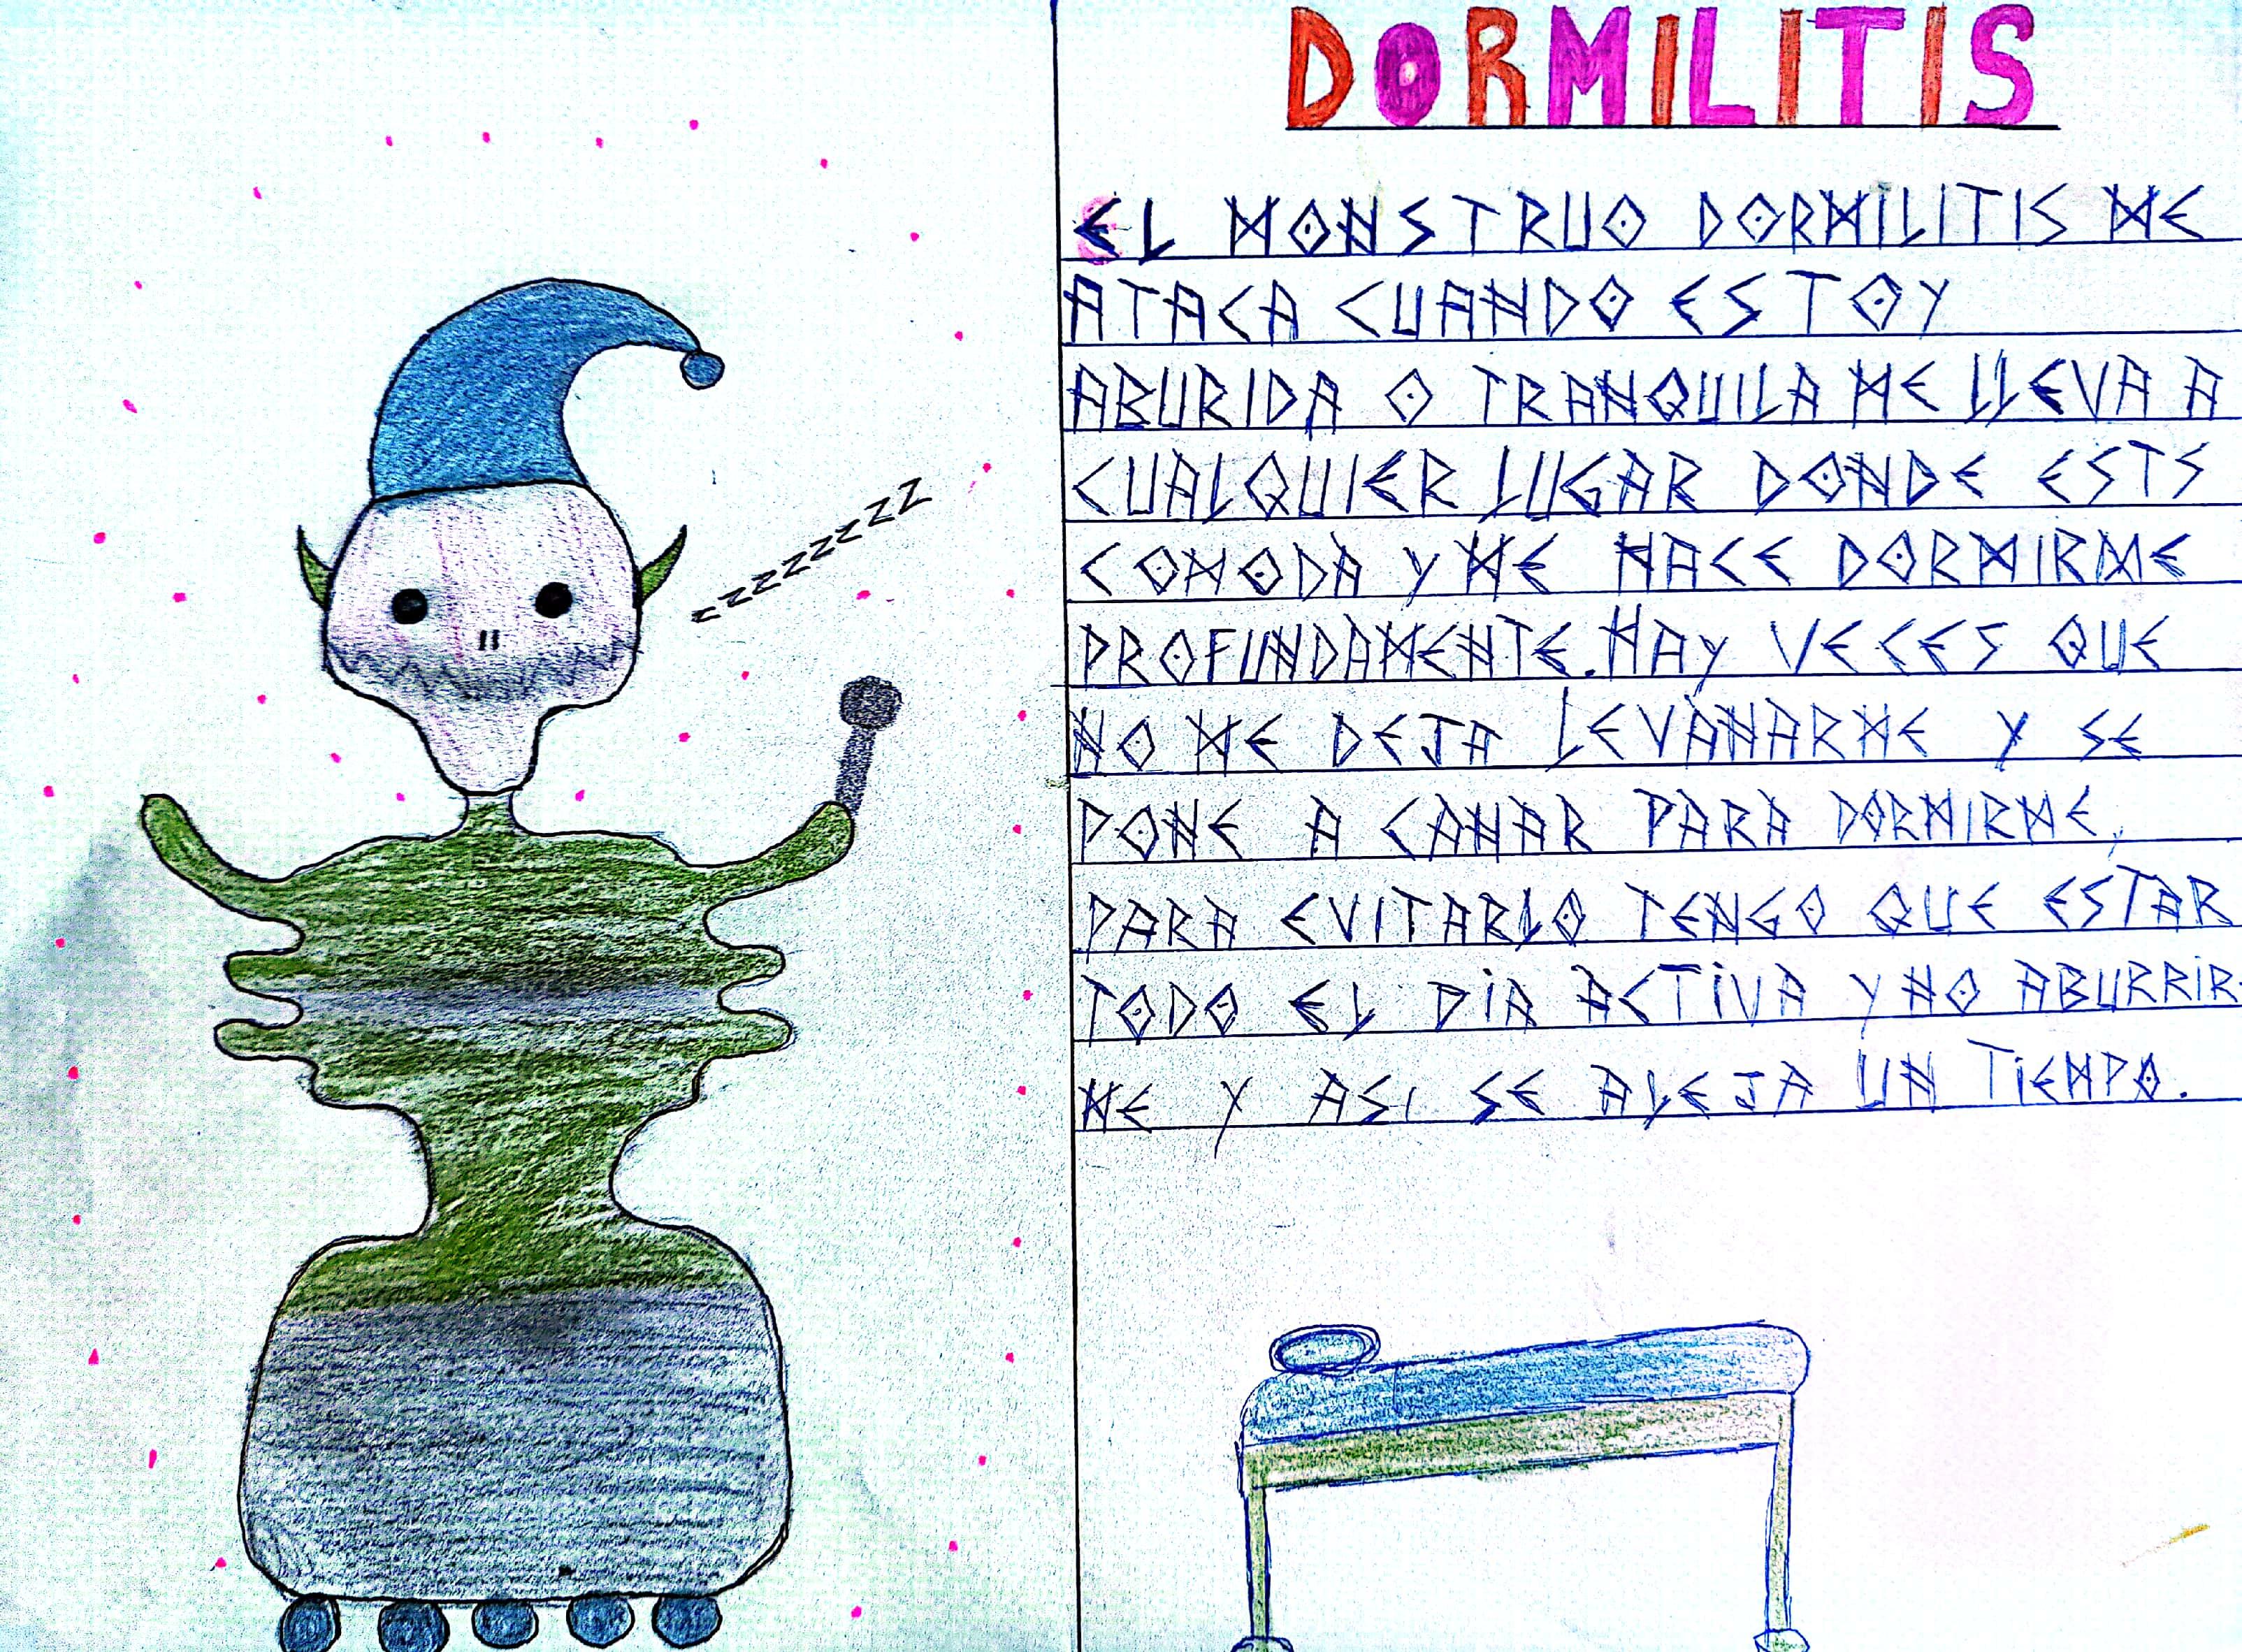 DORMILITIS
EL MONSTRUO DORMILITIS ME
ATACA CUANDO ESTOY
ABURIDA O TRANQUILA ME LLEVA A
CUALQUIER LUGAR DONDE ESTS
COMODA Y ME HACE DORMIRME
PROFUNDAMENTE. HAY VECES QUE
NO ME DEJA LEVANARME Y SE
PONE A CANAR PARA DORMIRME,
PARA EVITARLO TENGO QUE ESTAR
TODO EL DIA ACTIVA Y NO ABURRIR-
ME Y ASI SE ALEJA UN TIEMPO.
zzzzzzzzzz